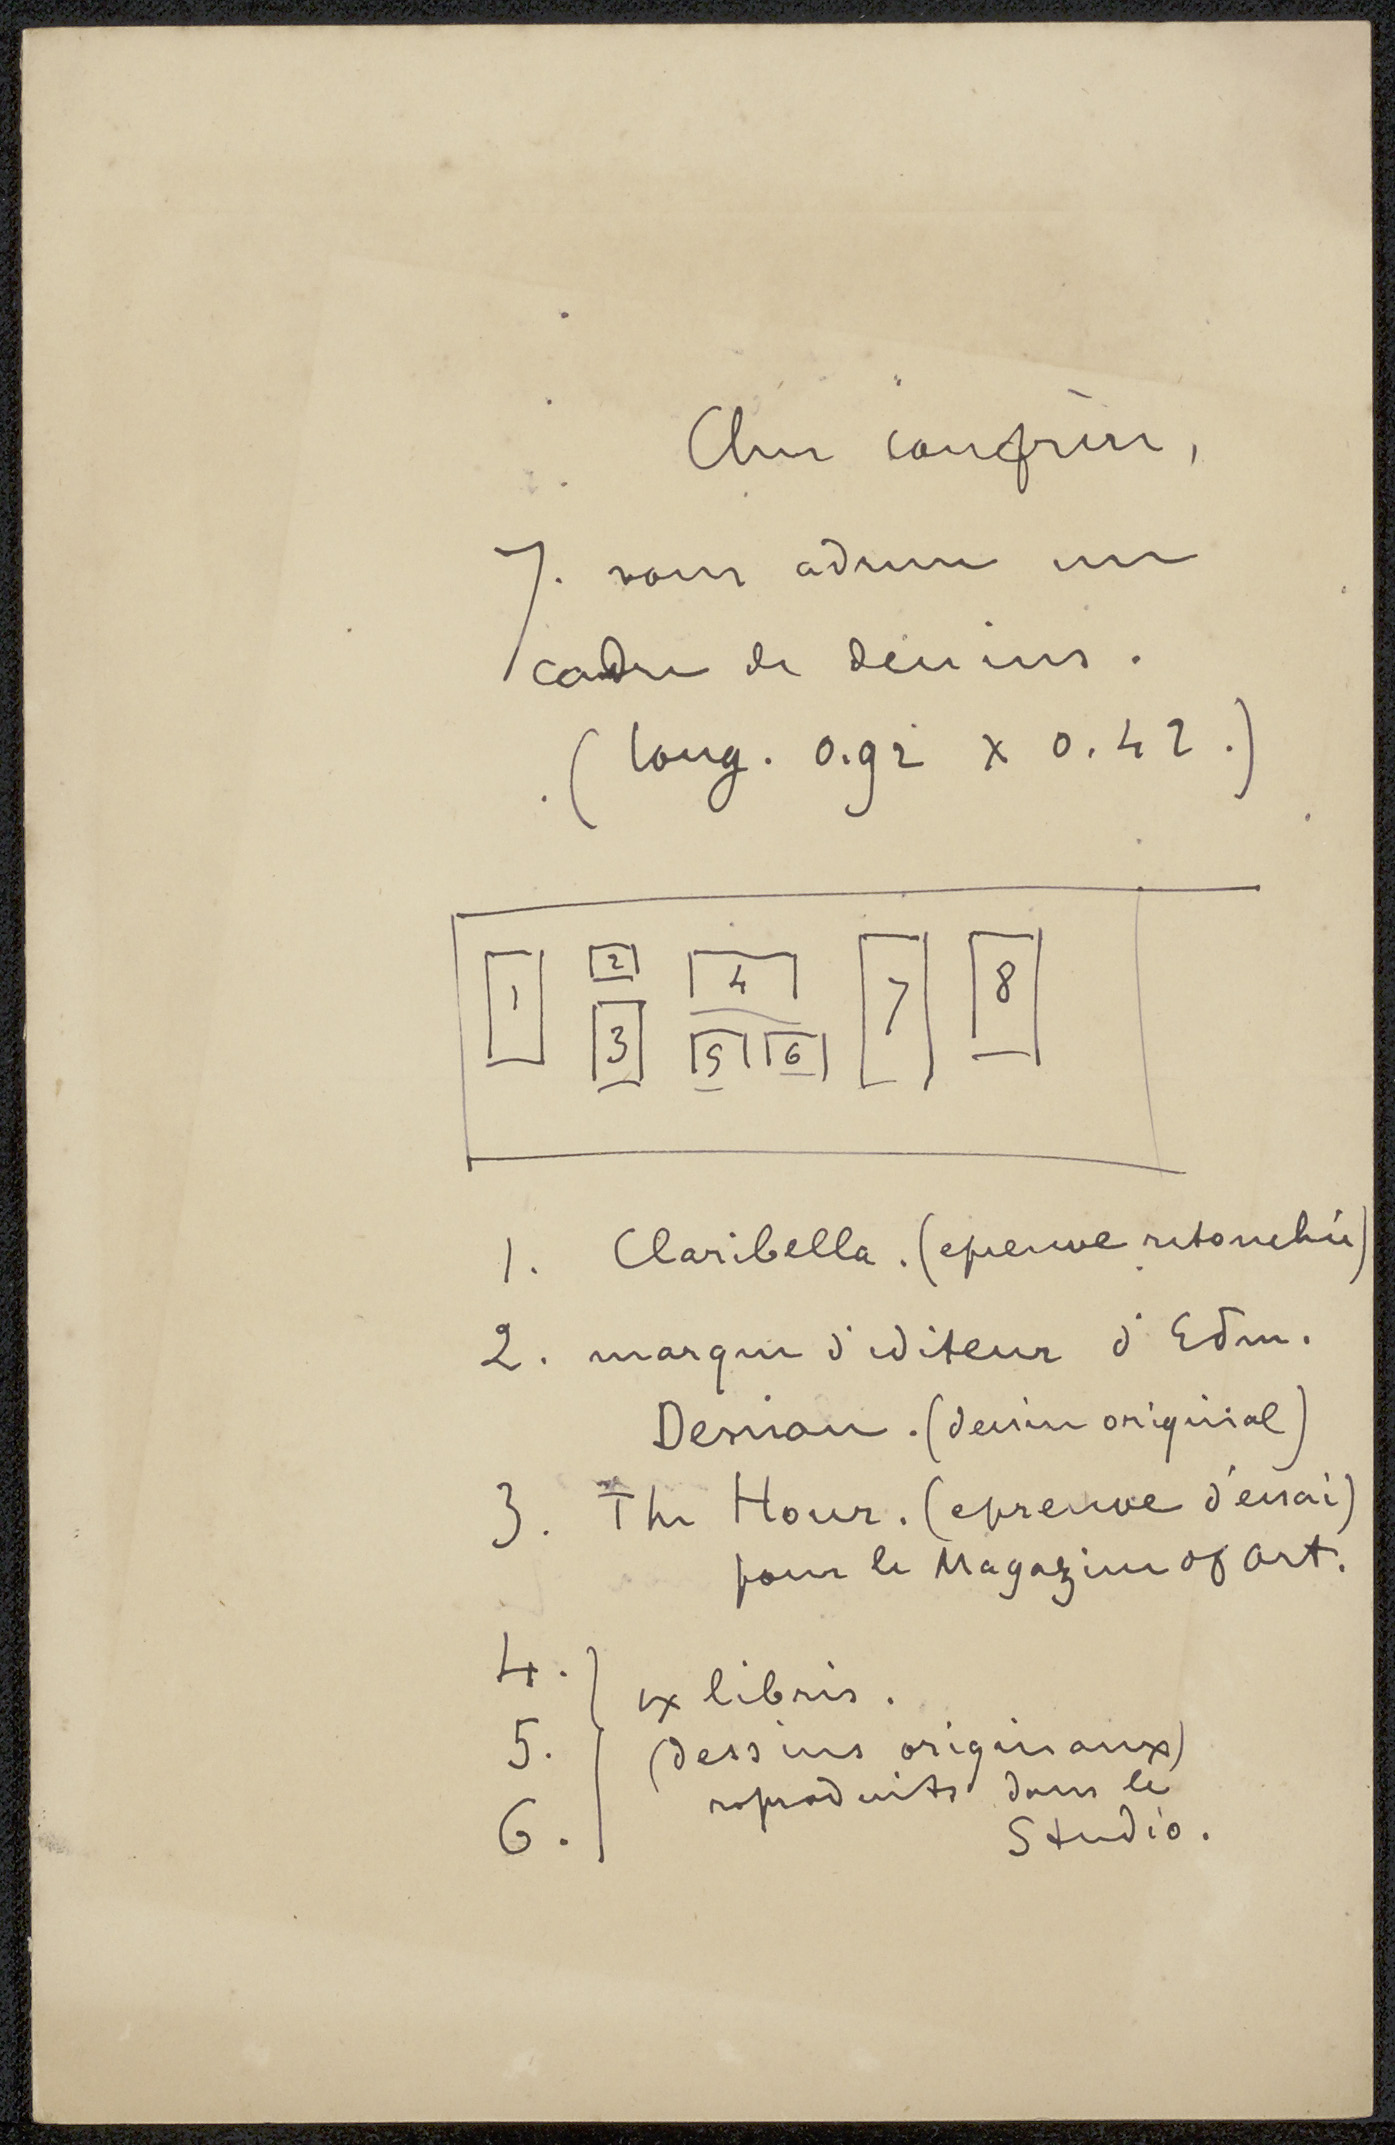 Cher confrère,
Je vous adresse un
cadre de dessins.
(long. 0.92 x 0.42.)
1 2 3 4 5 6 7 8
1. Claribella. (epreuve retouchée)
2. marque d'editeur d'Edm.
Deman. (dessin original)
3. The Hour. (epreuve d'essai)
pour le Magazine of art.
4.
5.
6.
ex libris.
(dessins originaux)
reproduits dans le
Studio.